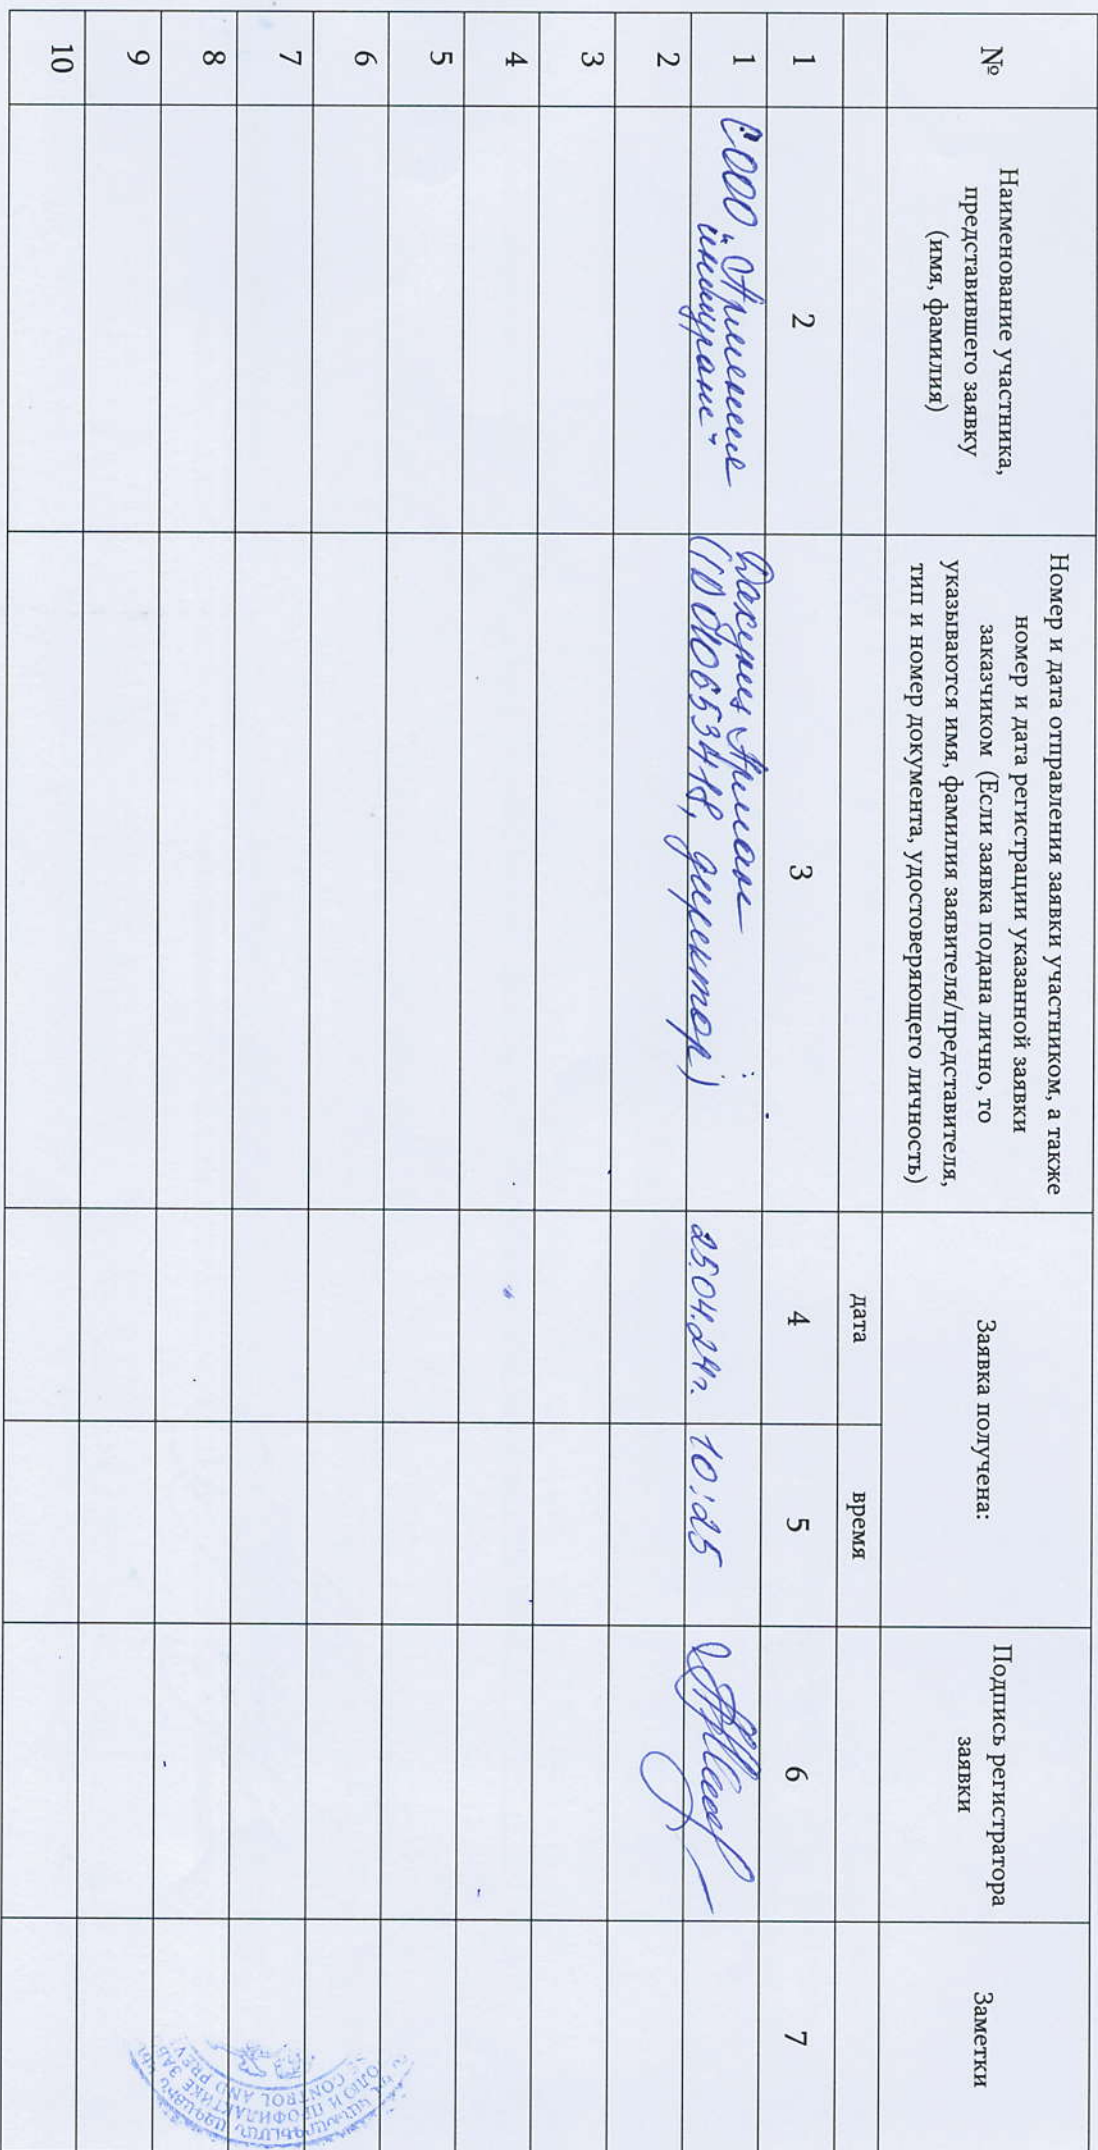 №
Наименование участника,
представившего заявку
(имя, фамилия)
Номер и дата отправления заявки участником, а также
номер и дата регистрации указанной заявки
заказчиком (Если заявка подана лично, то
указываются имя, фамилия заявителя/представителя,
тип и номер документа, удостоверяющего личность)
Заявка получена:
Подпись регистратора
заявки
Заметки
дата
время
1
2
3
4
5
6
7
1
СООО „Армения
иншуранс"
Арман
директор)
25.04.24г.
10:25
2
3
4
5
6
7
8
9
10
CONTROL AND PREV
И ПРОФИЛАКТИКЕ ЗАБ